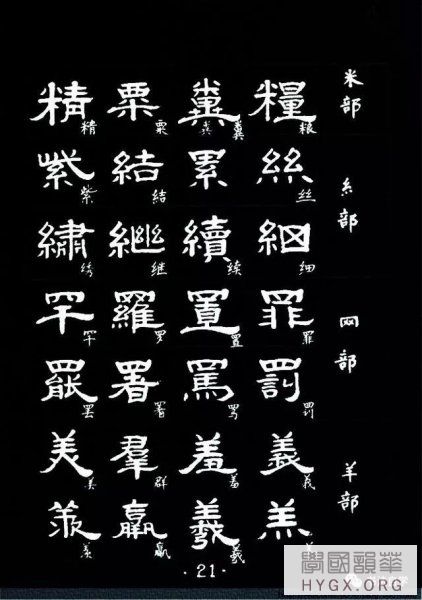 米部
糧 糞 粟 精
粮 粪 粟 精
糸部
絲 累 結 紫
丝 结 紫
細 續 繼 繡
细 续 继 绣
网部
罪 置 羅 罕
罪 置 罗 罕
罰 罵 署 罷
罚 骂 署 罢
羊部
義 羞 羣 美
羞 群 美
羔 羲 羨
羲 羡
·21·
學國韻華
HYGX.ORG